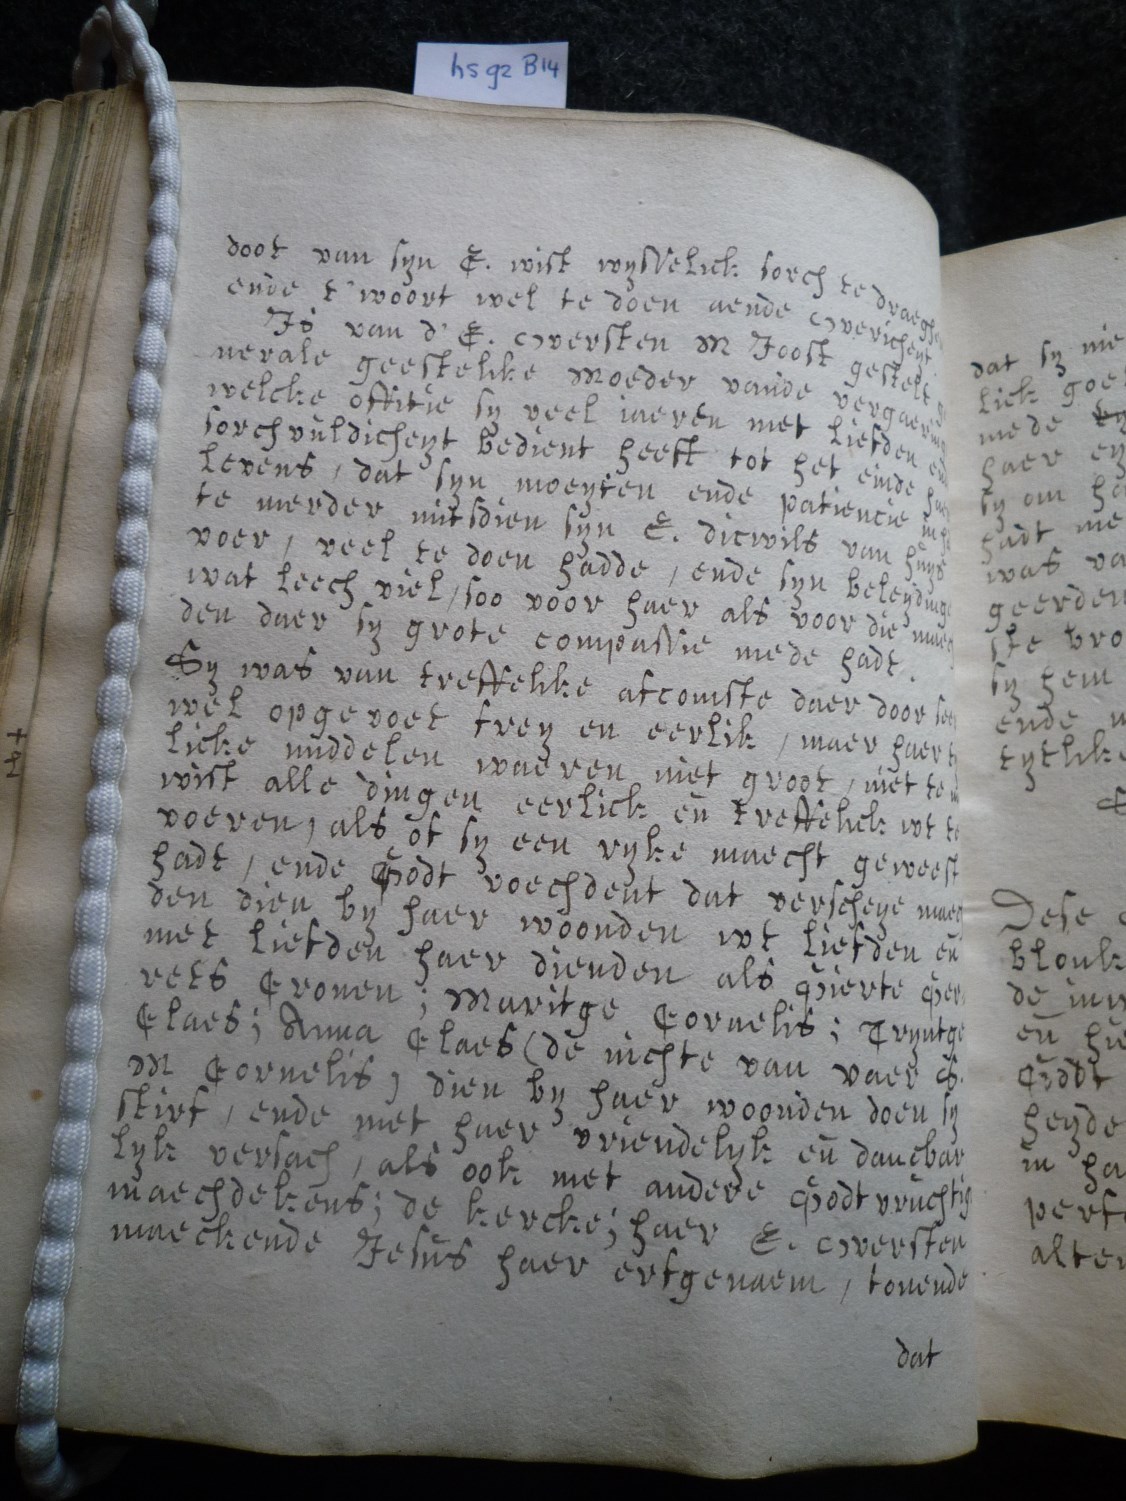 hs 92 B14
doot van syn E. wist wysselick sorch te draegh
ende t'woort wel te doen aende Overicheyt
Is van d' E. Oversten M Joost gestelt
nerale geestelike Moeder vande vergaer
welcke offitie sy veel iaeren met liefden en
sorchvuldicheyt bedient heeft tot het einde haer
levens, dat syn moeyten ende patiencie in
te meerder mitsdien syn E. dicwils van huys
voer, veel te doen hadde, ende syn beleydinge
wat leech viel, soo voor haer als voor die maeg
den daer sy grote compassie mede hadt.
Sy was van treffelike afcomste daer door seer
wel opgevoet frey en eerlik, maer haer
licke middelen waeren niet groot, niet te
wist alle dingen eerlick eñ treffelick wt te
voeren, als of sy een ryke maecht geweest
hadt, ende Godt voechdent dat verscheye maeg
den dien by haer woonden wt liefden eñ
met liefden haer dienden als Gierte Ger
rets Cronen; Maritge Cornelis; Tryntge
Claes; Anna Claes (de nichte van vaer S.
M Cornelis) dien by haer woonden doen sy
stirf, ende met haer vriendelyk eñ dancbar
lyk versach, als ook met andere Godtvruchtig
maechdekens; de kercke; haer E. Oversten
maeckende Jesus haer erfgenaem, tonende
dat
dat sy nie
lick goet
mede
haer
sy om
hadt me
was va
geerden
ste bro
sy hem
ende
tytlike
Dese
blonk
de
eñ hie
Godt
heyde
in ha
perf
alte